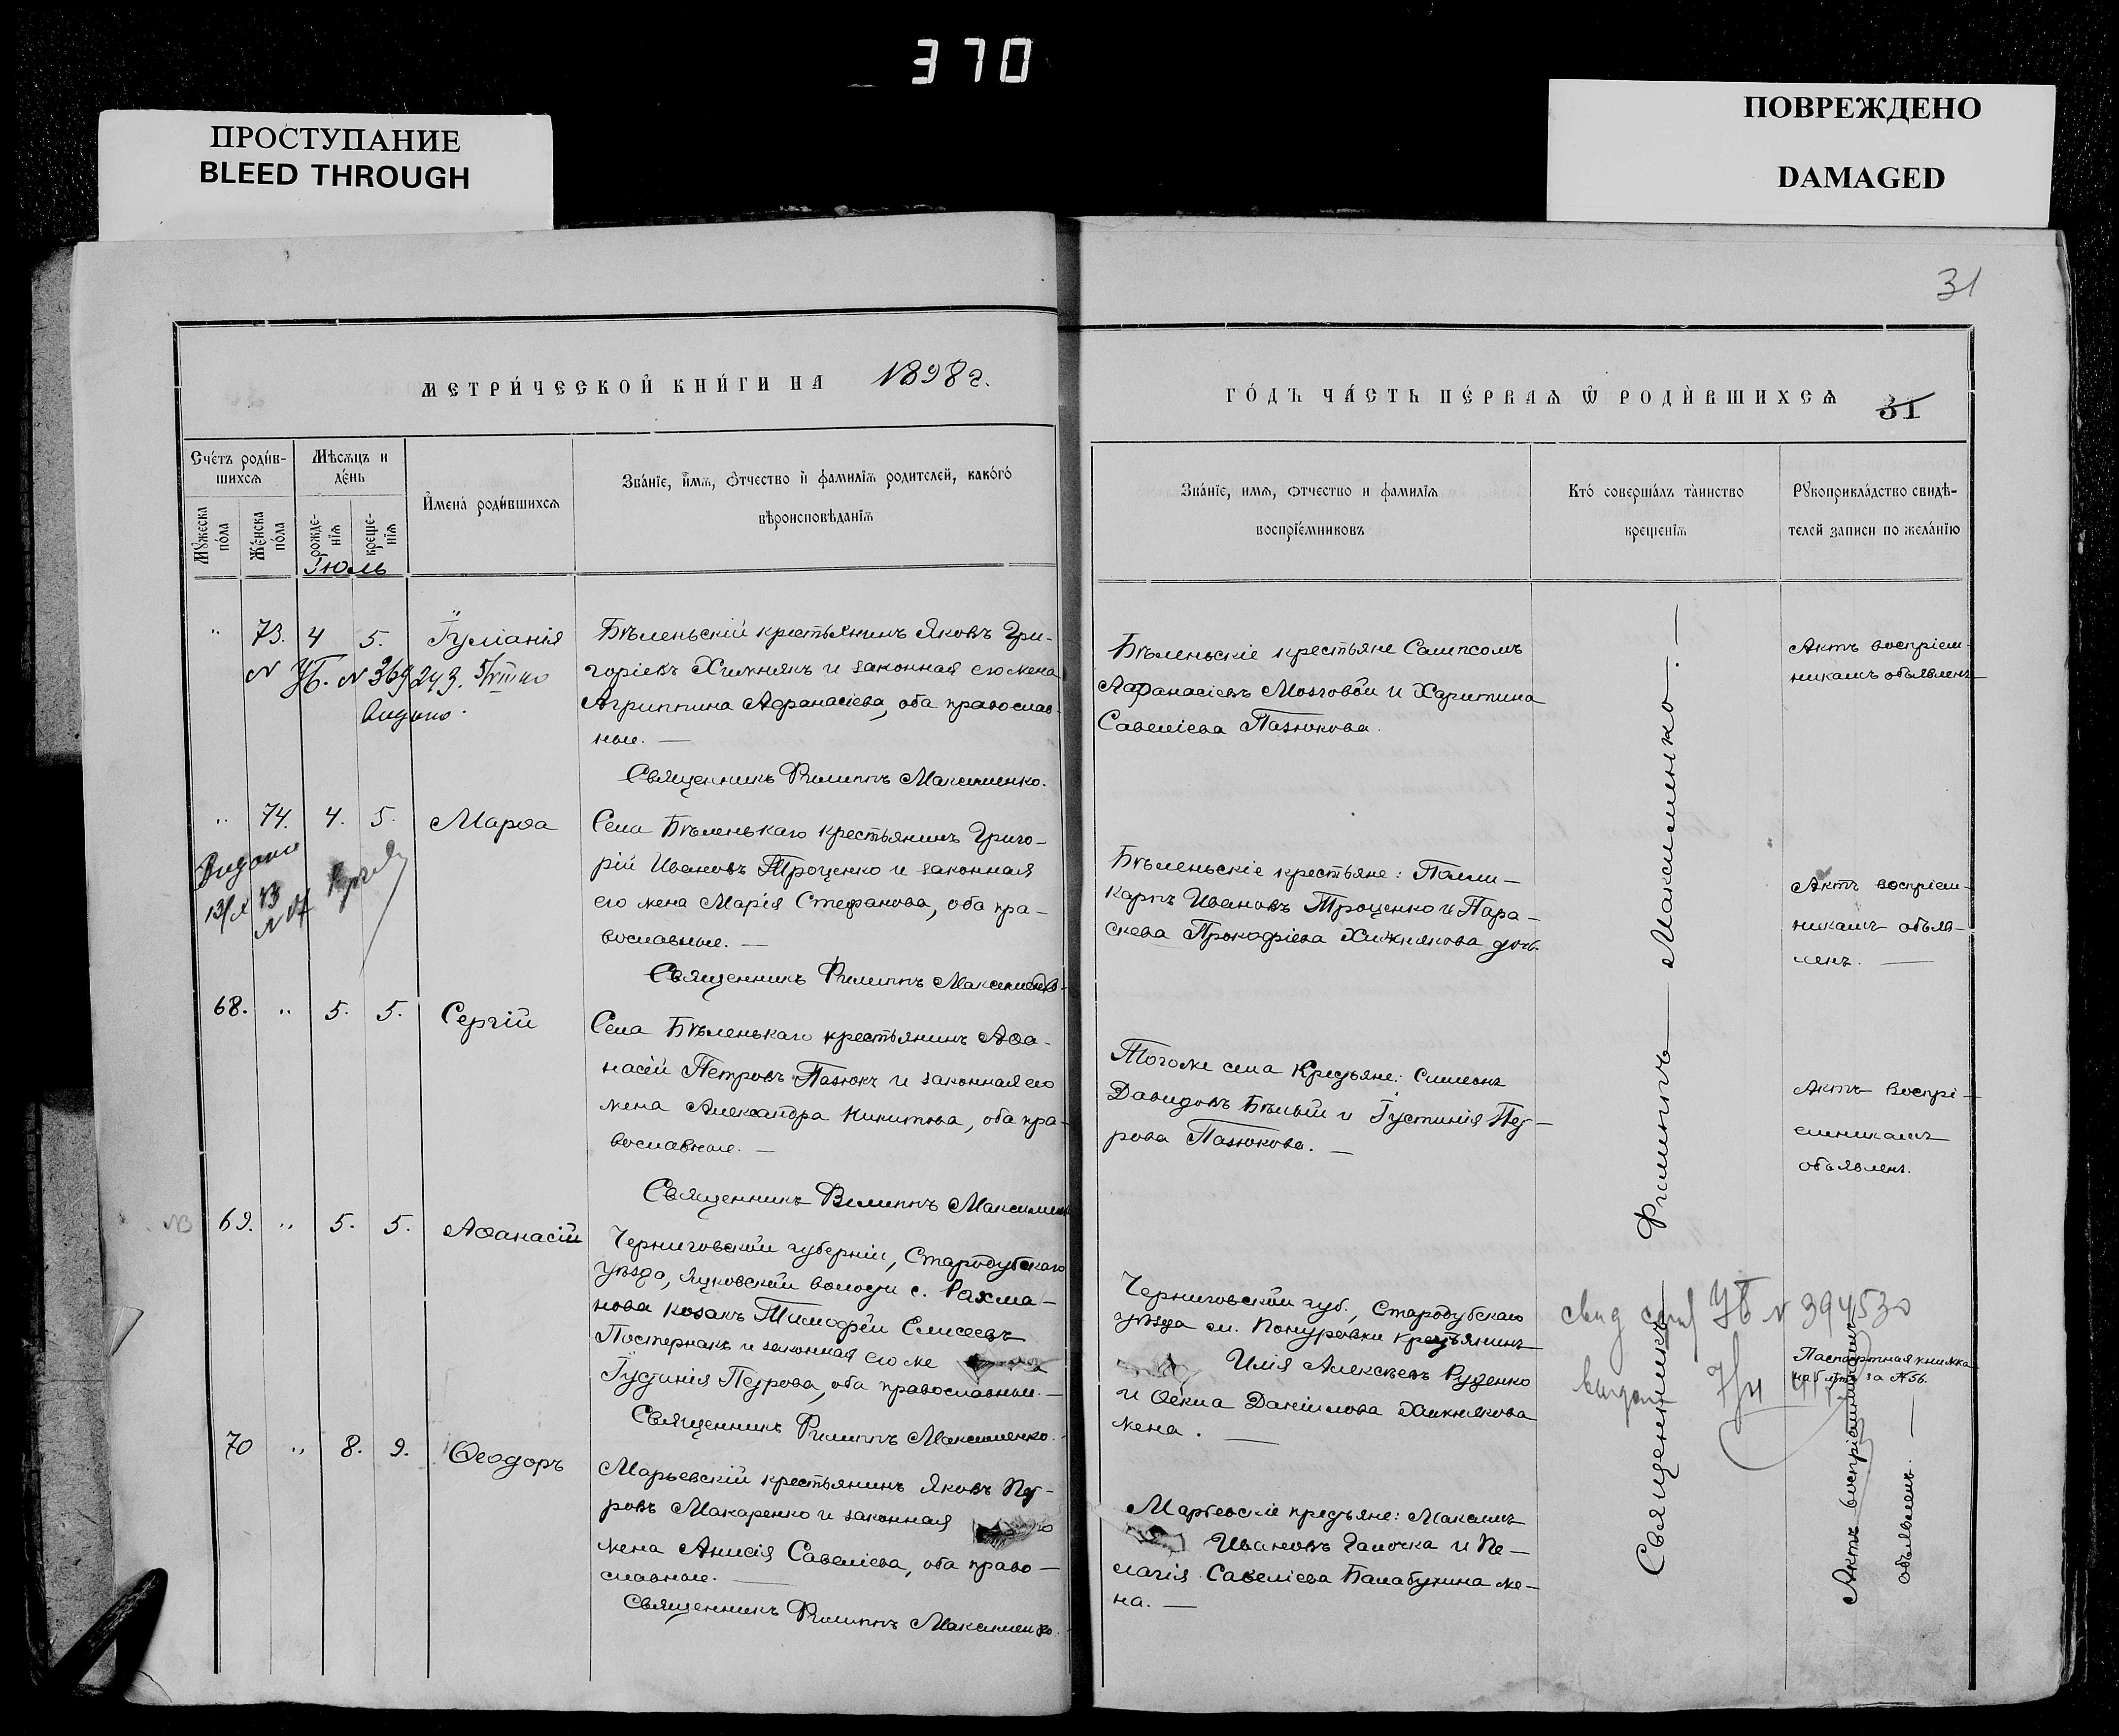 370
ПРОСТУПАНИЕ
BLEED THROUGH
ПОВРЕЖДЕНО
DAMAGED
31
МЕТРИ́ЧЕСКОЙ КНИ́ГИ НА 1898 г.
ГО́ДЪ ЧА́СТЬ ПЕ́РВАѦ Ѡ҆ РОДИ́ВШИХСѦ 31
Сче́тъ роди́в-
шихсѧ
Мꙋжеска по́ла
Же́нска по́ла
Мѣсѧцъ и
де́нь
рожде-
нїѧ
креще-
нїѧ
Іюль
И҆мена̀ роди́вшихсѧ
Зва́нїе, и҆́мѧ, ѻ҆́тчество и҆ фамилїѧ родителей, како́гѡ
вѣроисповѣданїѧ
Зва́нїе, имѧ, ѻтчество и фамилїѧ
воспрїе́мниковъ
Кто́ соверша́лъ та̀инство
крещенїѧ
Рꙋкоприкла́дство свидѣ-
телей записи по жела́нїю
" 73. 4 5. Іуліанія
N УБ. N 369243.
видано.
Бѣленьскій крестьянинъ Яковъ Гри-
горіевъ Хижнякъ и законная его жена
Агриппина Афанасіева, оба православ-
ные. —
Священникъ Филиппъ Максименко.
Бѣленьскіе крестьяне Сампсонъ
Афанасіевъ Мозговой и Харитина
Савеліева Пазюкова.
Актъ воспріем-
никамъ объявленъ
" 74. 4. 5. Марѳа
Видано
Села Бѣленькаго крестьянинъ Григо-
рій Ивановъ Троценко и законная
его жена Марія Стефанова, оба пра-
вославные. —
Священникъ Филиппъ Максименко.
Бѣленьскіе крестьяне: Поли-
карпъ Ивановъ Троценко и Пара-
скева Прокофіева Хижнякова дочь
Актъ воспріем-
никамъ объяв-
ленъ. —
68. " 5. 5. Сергій
Села Бѣленькаго крестьянинъ Аѳа-
насій Петровъ Пазюкъ и законная его
жена Александра Никитова, оба пра-
вославные. —
Священникъ Филиппъ Максименко
Тогоже села крестьяне: Симеонъ
Давидовъ Бѣлый и Іустинія Пет-
рова Пазюкова. —
Актъ воспрі-
емникамъ
объявленъ.
NB 69. " 5. 5. Аѳанасій
Черниговской губерніи, Стародубскаго
уѣзда, Яцковской волости с. Рахма-
нова козакъ Тимофей Елисеевъ
Постернакъ и законная его же
Іустинія Петрова, оба православные. —
Священникъ Филиппъ Максименко.
Черниговской губ., Стародубскаго
уѣзда м. Понуровки крестьянинъ
Илія Алексѣевъ Руденко
и Ѳекла Даніилова Хижнякова
жена. —
свид УБ N 394530
Паспортная книжка
за №56.
70 " 8. 9. Ѳеодоръ
Марьевскій крестьянинъ Яковъ Пет-
ровъ Макаренко и законная его
жена Анисія Савеліева, оба право-
славные. —
Священникъ Филиппъ Максименко.
Марьевскіе крестьяне: Максимъ
Ивановъ Галочка и Пе-
лагія Савеліева Балабухина же-
на. —
Священникъ — Филиппъ — Максименко. —
Актъ воспріемникамъ
объявленъ. —